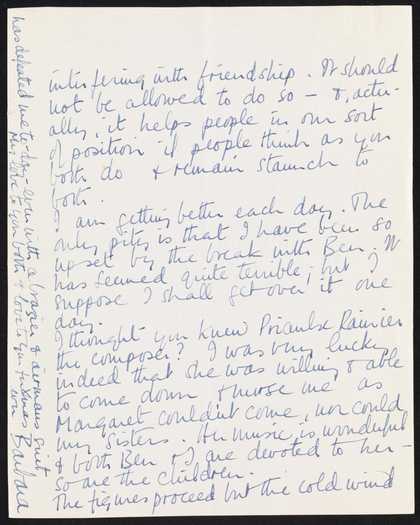 interfering with friendship. It should
not be allowed to do so — &, actu-
ally, it helps people in our sort
of position if people think as you
both do & remain staunch to
both.
I am getting better each day. The
only pity is that I have been so
upset by the break with Ben; it
has seemed quite terrible; but I
suppose I shall get over it one
day.
I thought you knew Priaulx Rainier
the composer? I was very lucky
indeed that she was willing & able
to come down & nurse me as
Margaret couldn't come, nor could
my sisters. Her music is wonderful
& both Ben & I are devoted to her —
so are the children.
The figures proceed but the cold wind
has defeated me to-day - even with a brazier & airmans suit
My love to you both & love to you
from Barbara